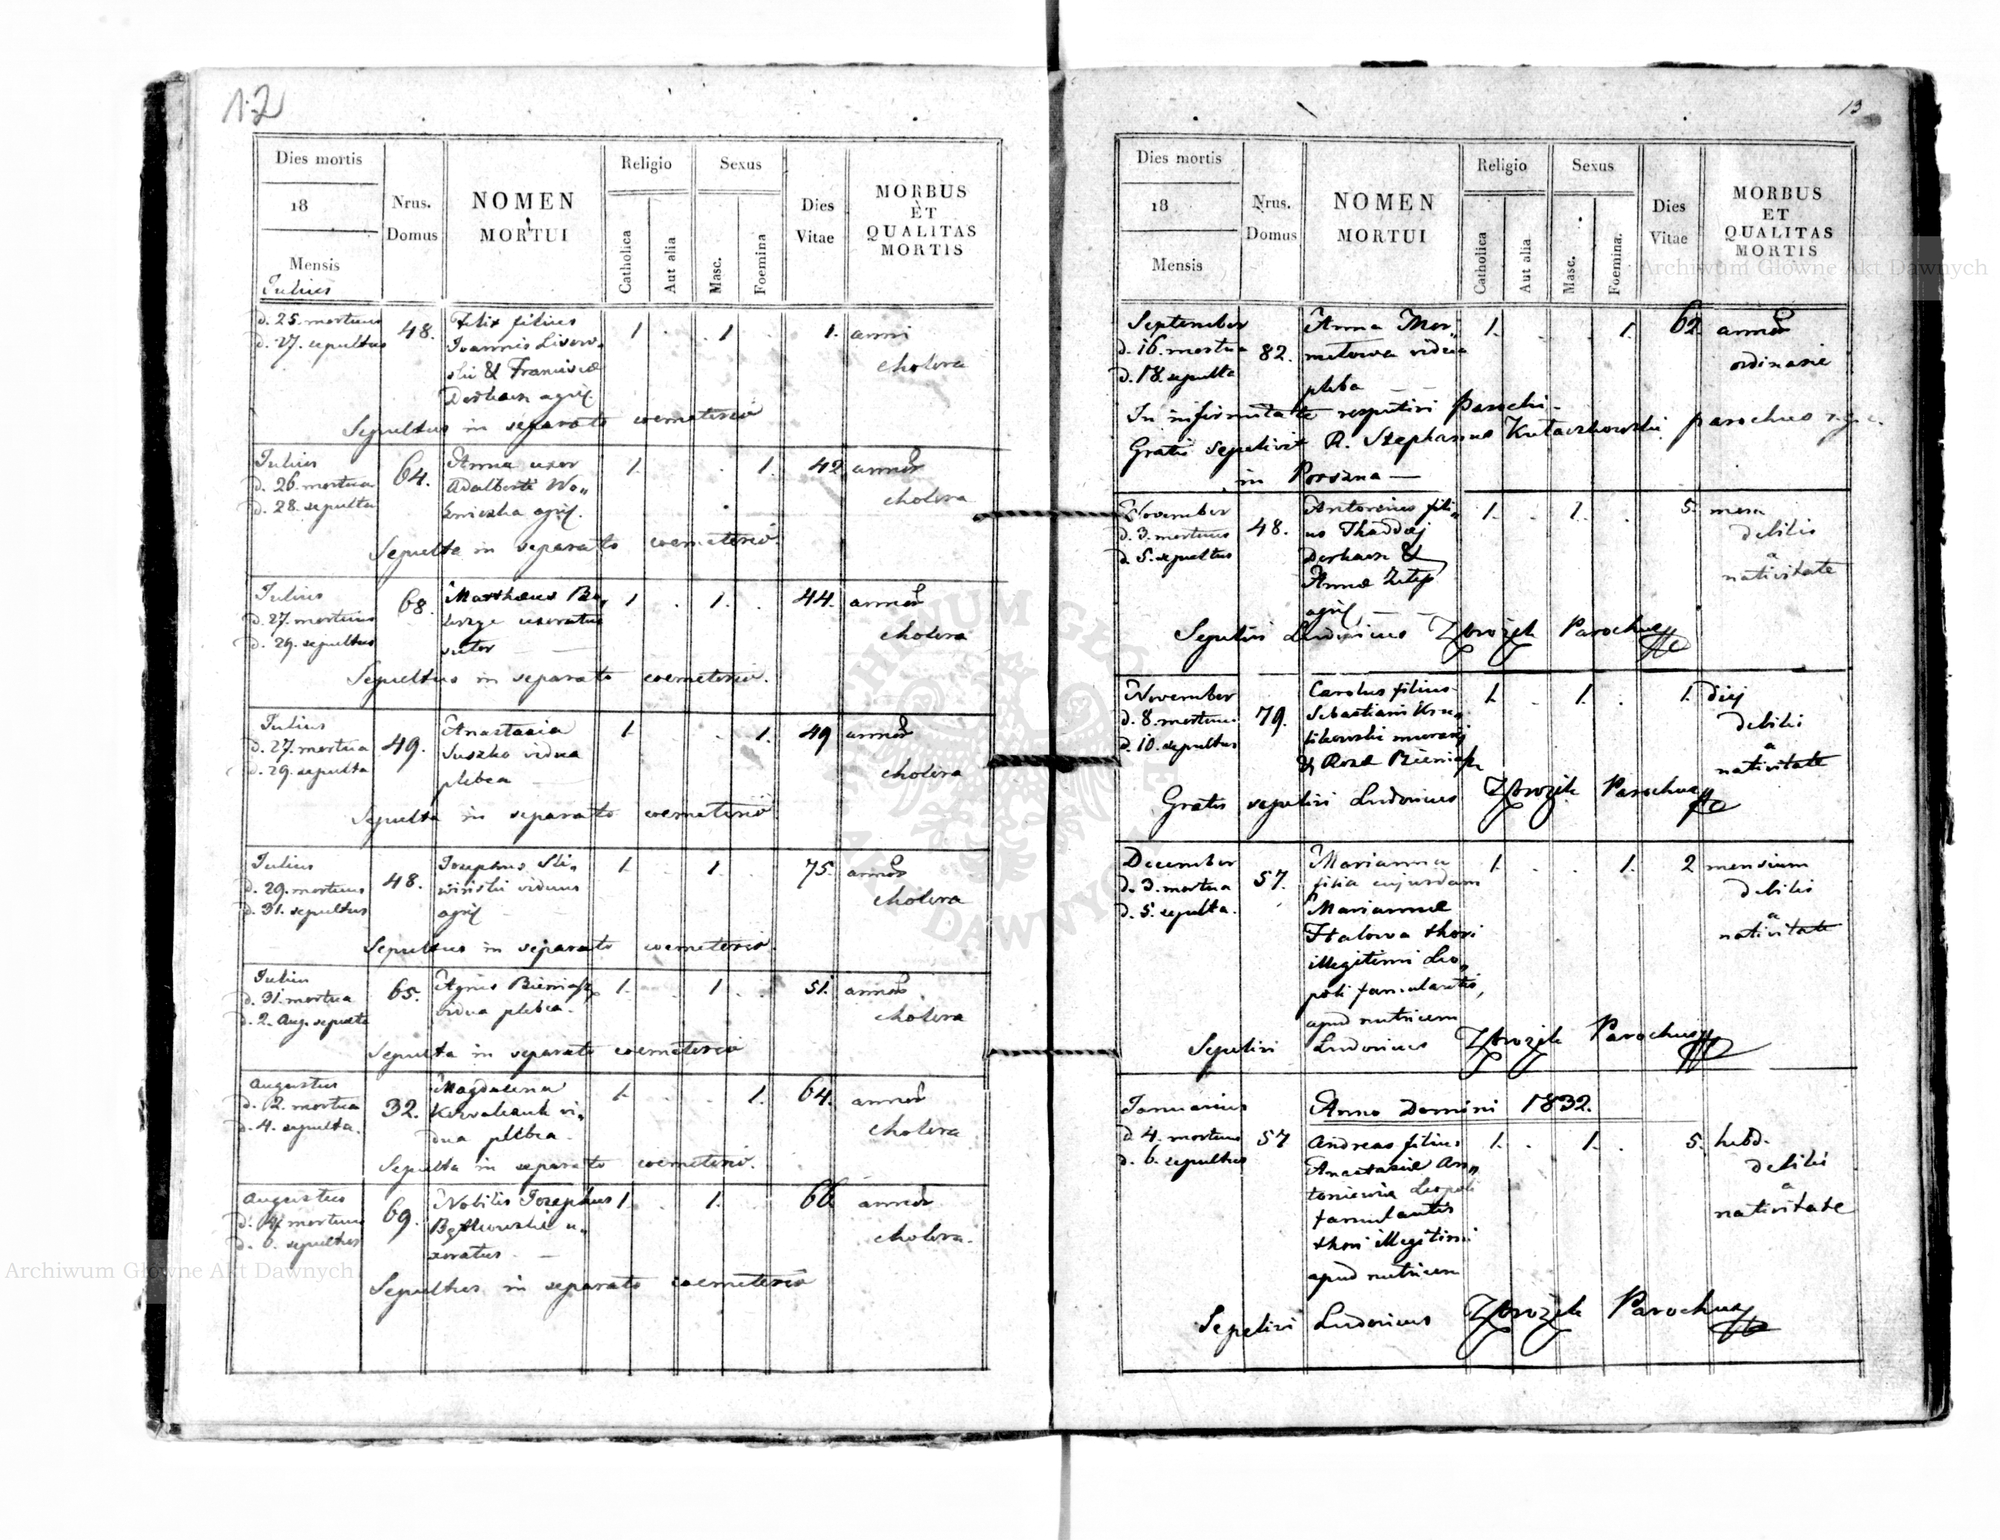 12
Dies mortis
18
Mensis
Julius
Nrus.
Domus
NOMEN
MORTUI
Religio
Catholica
Aut alia
Sexus
Masc.
Foemina
Dies
Vitae
MORBUS
ET
QUALITAS
MORTIS
d. 25. mortuus 48. Felix filius 1. . 1. . 1. anni
d. 27. sepultus Joannis Lisow„ cholera
ski & Franciscæ
Derkacz agric.
Sepultus in separato coemeterio
Julius 64. Anna uxor 1. . . 1. 42. annor
d. 26. mortua Adalberti Wo„ cholera
d. 28. sepulta agric.
Sepulta in separato coemeterio.
Julius 68. Matthæus 1. . 1. . 44. annor
d. 27. mortuus uxoratus cholera
d. 29. sepultus sutor
Sepultus in separato coemeterio.
Julius 49. Anastasia 1. . . 1. 49 annor
d. 27. mortua Juszko vidua cholera
d. 29. sepulta plebea
Sepulta in separato coemeterio
Julius 48. Josephus Sli„ 1. . 1. . 75. annor
d. 29. mortuus wiński viduus cholera
d. 31. sepultus agric.
Sepultus in separato coemeterio.
Julius 65. Agnes Bieniasz 1. . 1. . 51. annor
d. 31. mortua vidua plebea. cholera
d. 2. Aug. sepulta
Sepulta in separato coemeterio
Augustus 32. Magdalena 1. . . 1. 64. annor
d. 2. mortua Kowalczuk vi„ cholera
d. 4. sepulta. dua plebea.
Sepulta in separato coemeterio.
Augustus 69. Nobilis Josephus 1. . 1. . 66. annor
d. 4. mortuus Bętkowski u„ cholera.
d. 6. sepultus xoratus.
Sepultus in separato coemeterio
13
Dies mortis
18
Mensis
Nrus.
Domus
NOMEN
MORTUI
Religio
Catholica
Aut alia
Sexus
Masc.
Foemina.
Dies
Vitae
MORBUS
ET
QUALITAS
MORTIS
September Anna Mor„ 1. . . 1. 62. annor
d. 16. mortua 82. vidua ordinarie
d. 18. sepulta pleba
In infirmitate respectivi Parochi
Gratis sepelivit R. Stephanus parochus r. g. c.
in Porszna —
November Antonius fili„ 1. . 1. . 5. mens
d. 3. mortuus 48. us Thaddæi debilis
d. 5. sepultus Derkacz & a
Annæ nativitate
agric.
Sepelivi Ludovicus Zbrożek Parochus
November Carolus filius 1. . 1. . 1. diei
d. 8. mortuus 79. Sebastiani Kru„ debilis
d. 10. sepultus a
& Rosæ Bieniasz nativitate
Gratis sepelivi Ludovicus Zbrożek Parochus
December Marianna 1. . . 1. 2 mensium
d. 3. mortua 57. filia cujusdam debilis
d. 5. sepulta. Mariannæ a
thori nativitate
illegitimi Leo„
poli famulantis,
apud nutricem
Sepelivi Ludovicus Zbrożek Parochus
Januarius Anno Domini 1832.
d. 4. mortuus 57 Andreas filius 1. . 1. . 5. hebd.
d. 6. sepultus Anastasiæ An„ debilis
toniewia Leopoli a
famulantis nativitate
thori illegitimi
apud nutricem
Sepelivi Ludovicus Zbrożek Parochus
ARCHIWUM GŁÓWNE
AKT DAWNYCH
Archiwum Główne Akt Dawnych
Archiwum Główne Akt Dawnych